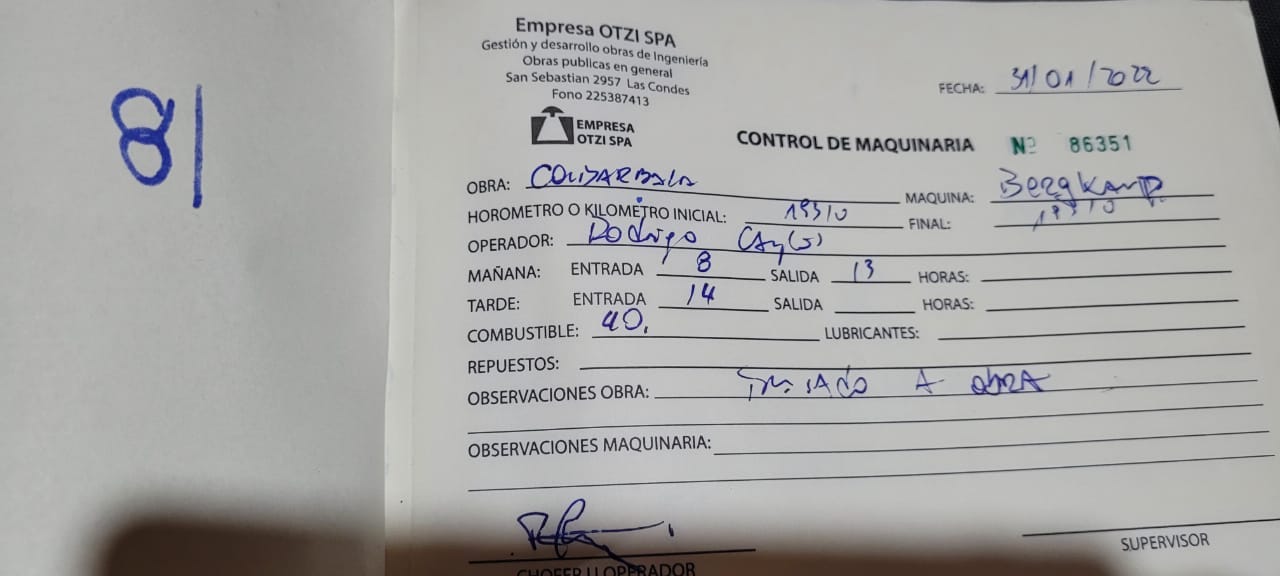 81
Empresa OTZI SPA
Gestión y desarrollo obras de Ingeniería
Obras publicas en general
San Sebastian 2957 Las Condes
Fono 225387413
EMPRESA
OTZI SPA
FECHA: 31/01/2022
CONTROL DE MAQUINARIA Nº 86351
OBRA: MAQUINA: Bergkamp
HOROMETRO O KILOMETRO INICIAL: 19310 FINAL: 19310
OPERADOR: Rodrigo
MAÑANA: ENTRADA 8 SALIDA 13 HORAS:
TARDE: ENTRADA 14 SALIDA HORAS:
COMBUSTIBLE: 40. LUBRICANTES:
REPUESTOS:
OBSERVACIONES OBRA: A obRA
OBSERVACIONES MAQUINARIA:
CHOFER U OPERADOR
SUPERVISOR